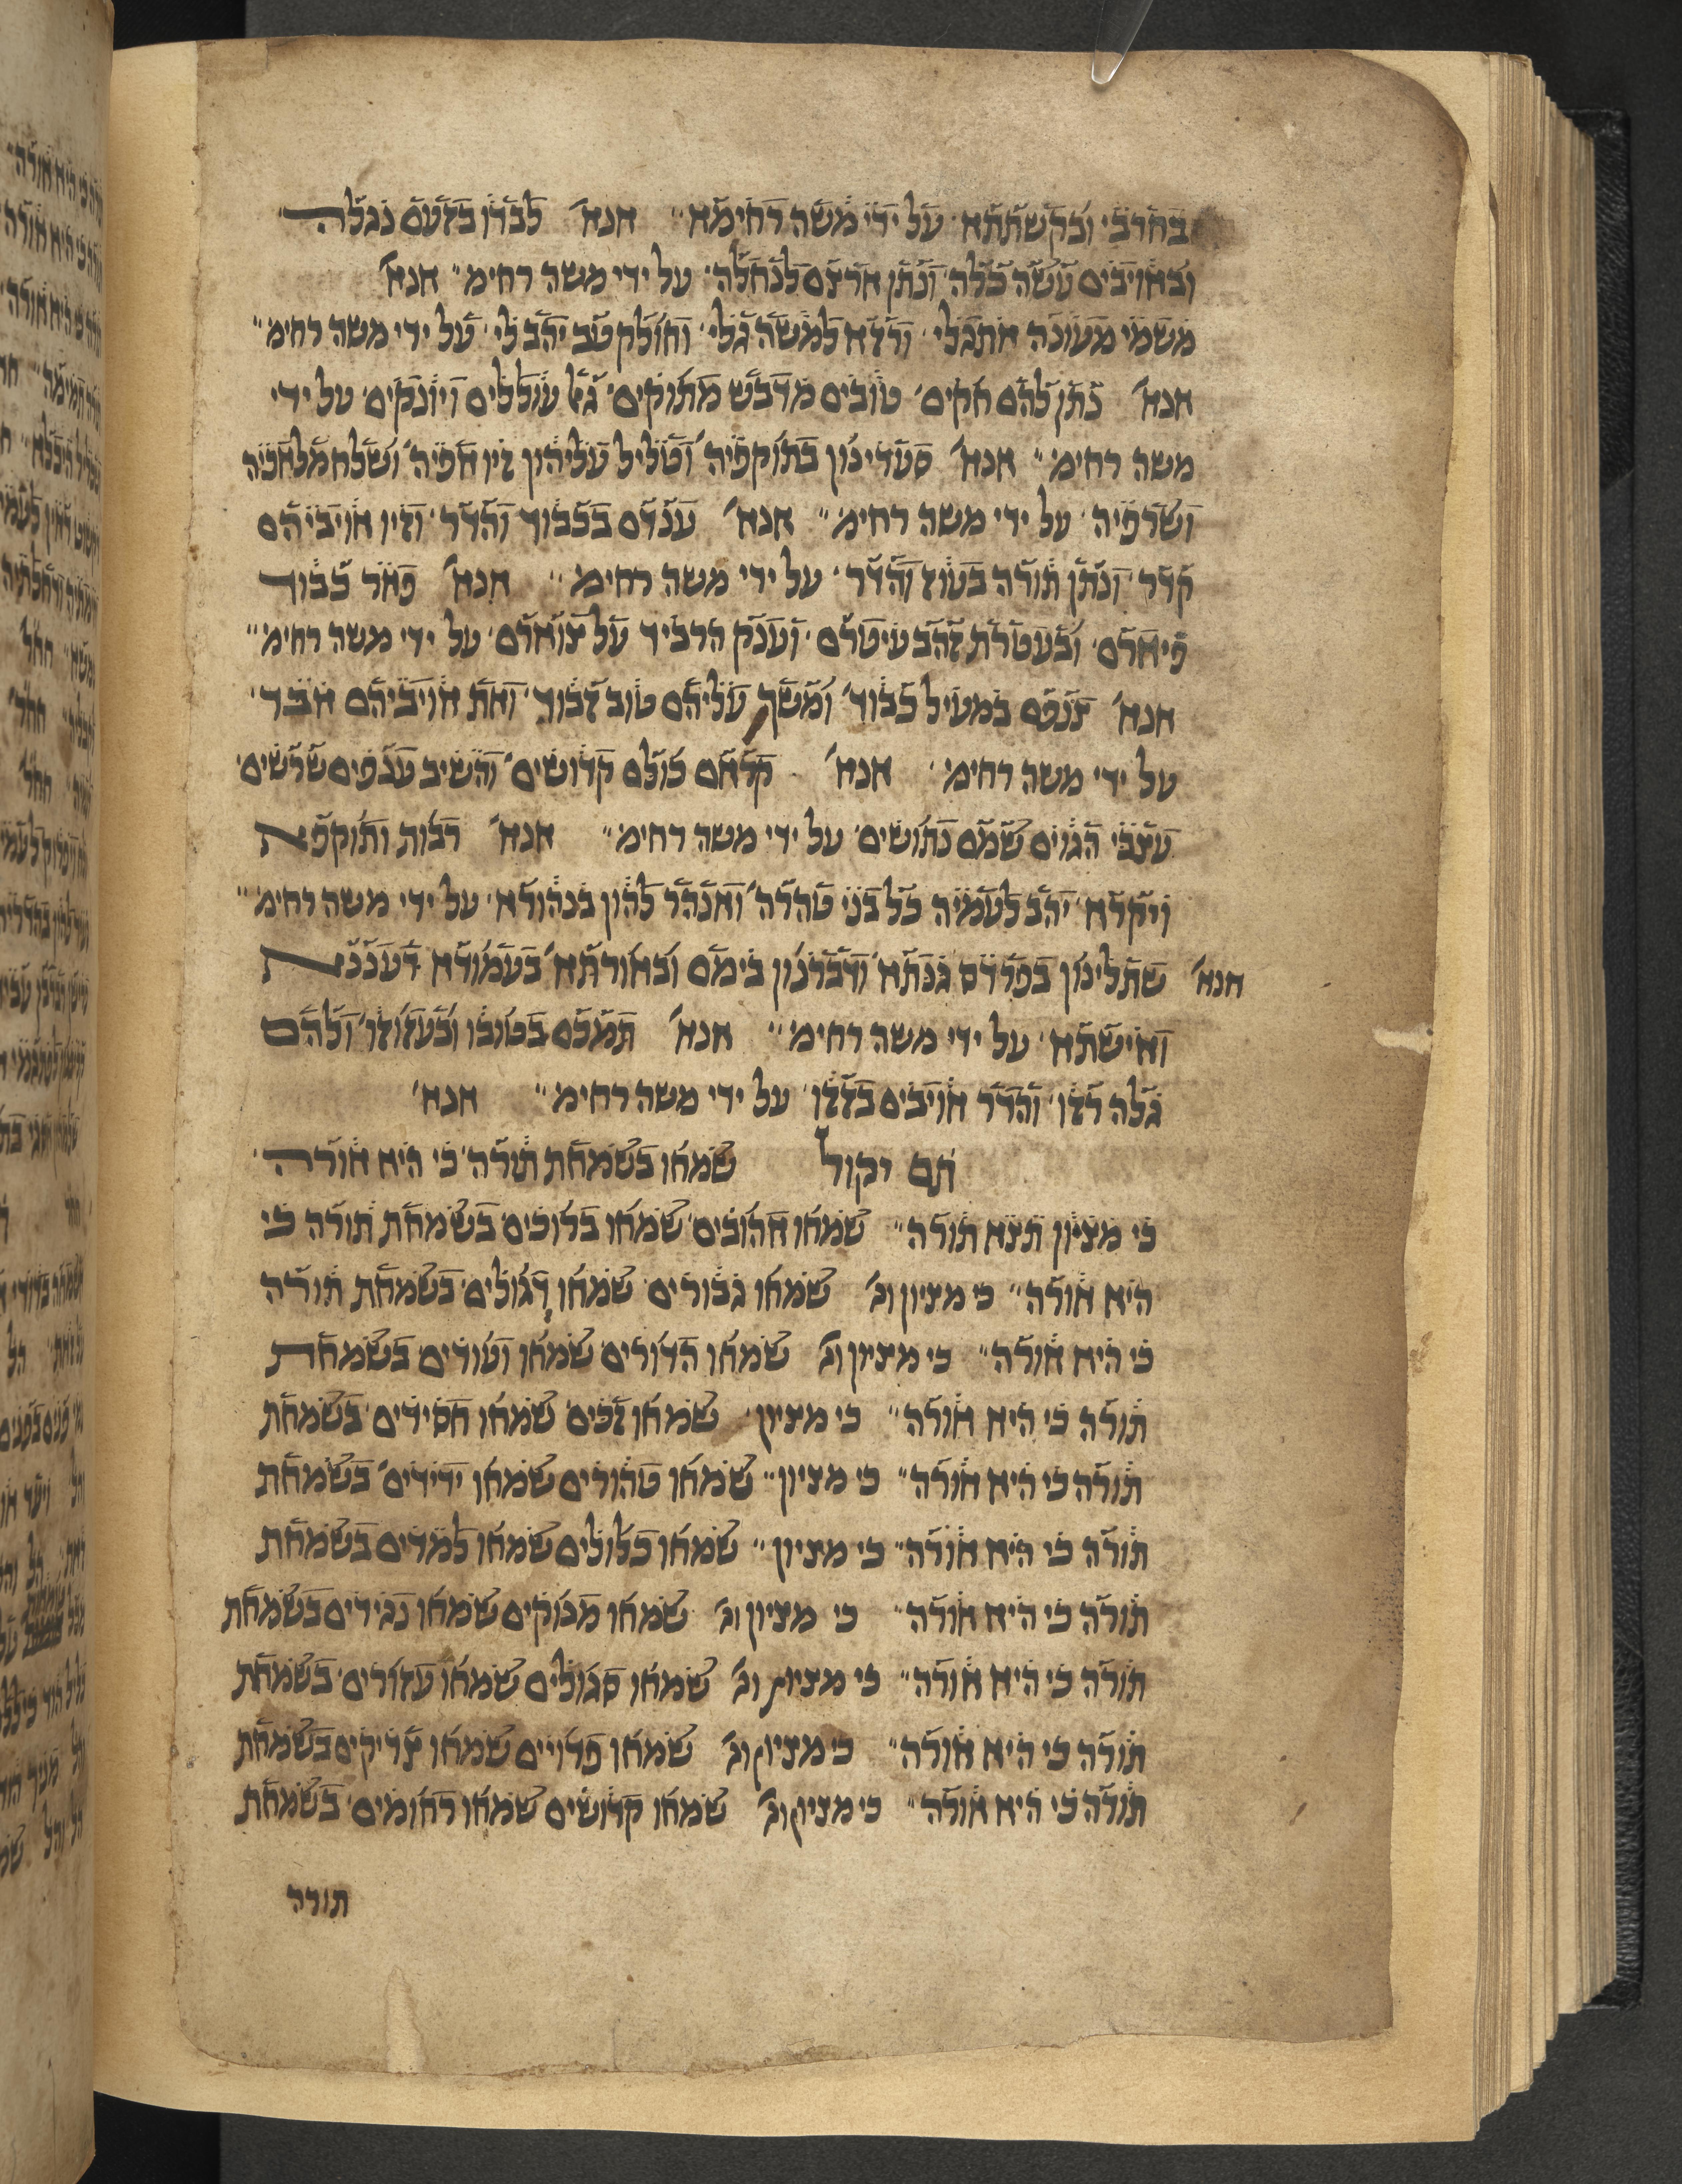 בחרבי ובקשתתא על ידי משה רחימא אנא לבדו בזעם נגלה
ובאויבים עשה כלה ונתן ארצם לנחלה על ידי משה רחימ׳ אנא׳
משמי מעונה אתגלי ורזא למשה גלי וחולק טב יהב לי על ידי משה רחימ׳
אנא׳ נתן להם חקים טובים מדבש מתוקים גם עוללים ויונקים על ידי
משה רחימ׳ אנא׳ סעדינון בתוקפיה וטליל עליהון זיו אפיה ושלח מלאכיה
ושרפיה על ידי משה רחימ׳ אנא׳ ענדם בכבוד והדר וזיו אויביהם
קדר ונתן תורה בעוז והדר על ידי משה רחימ׳ אנא׳ פאר כבוד
פיארם ובעטרת זהב עיטרם וענק הרביד על צוארם על ידי משה רחימ׳
אנא׳ צנפם במעיל כבוד ומשך עליהם טוב זבוד ואת אויביהם אבד
על ידי משה רחימ׳ אנא׳ קראם כולם קדושים והשיב ענפים שרשים
עצבי הגוים שמם נתושים על ידי משה רחימ׳ אנא׳ רבות ותוקפא
ויקרא יהב לעמיה כל בני טהרה ואנהר להון בנהורא על ידי משה רחימ׳
אנא׳ שתלינון בפרדס גנתא ודברנון בימם ובאורתא בעמודא דעננא
ואישתא על ידי משה רחימ׳ אנא׳ תמכם בטובו ובעזוזו ולהם
גלה רזו והדר אויבים בזזו על ידי משה רחימ׳ אנא׳
תם יקול שמחו בשמחת תורה כי היא אורה
כי מציון תצא תורה שמחו אהובים שמחו ברוכים בשמחת תורה כי
היא אורה כי מציון וג׳ שמחו גבורים שמחו דגולים בשמחת תורה
כי היא אורה כי מציון וג׳ שמחו הדורים שמחו ועודים בשמחת
תורה כי היא אורה כי מציון שמחו זכים שמחו חסידים בשמחת
תורה כי היא אורה כי מציון שמחו טהורים שמחו ידידים בשמחת
תורה כי היא אורה כי מציון שמחו כלולים שמחו למדים בשמחת
תורה כי היא אורה כי מציון וג׳ שמחו מבוקים שמחו נגידים בשמחת
תורה כי היא אורה כי מציון וג׳ שמחו סגולים שמחו עזורים בשמחת
תורה כי היא אורה כי מציון וג׳ שמחו פדויים שמחו צדיקים בשמחת
תורה כי היא אורה כי מציון וג׳ שמחו קדושים שמחו רחומים בשמחת
תורה